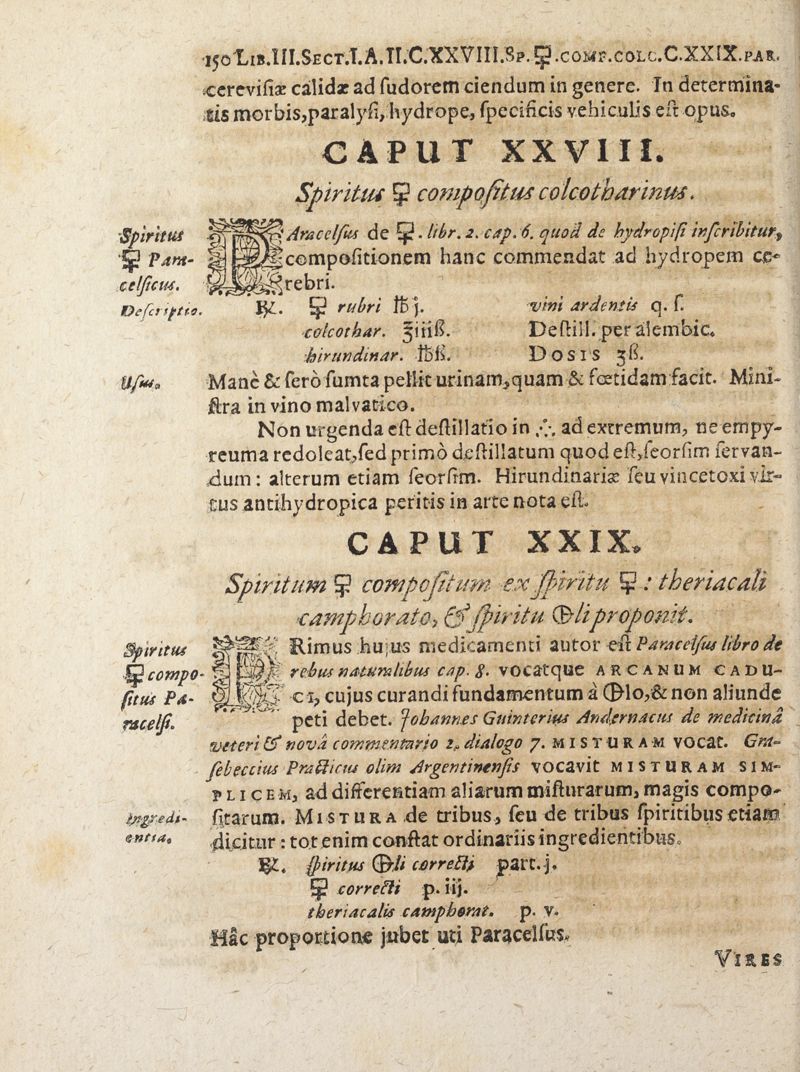 150 LIB.III.SECT.I.A.II.C.XXVIII.SP.🜿.COMP.COLC.C.XXIX.PAR.
cerevisiæ calidæ ad sudorem ciendum in genere. In determina-
tis morbis, paralysi, hydrope, specificis vehiculis est opus.
CAPUT XXVIII.
Spiritus 🜿 compositus colcotharinus.
Spiritus
🜿 Para-
celsicus.
PAracelsus de 🜿. libr. 2. cap. 6. quod de hydropisi inscribitur,
compositionem hanc commendat ad hydropem ce-
rebri.
Descriptio.
℞. 🜿 rubri ℔ j. vini ardentis q. ſ.
colcothar. ℥iiiß. Destill. per alembic.
hirundinar. ℔ß. DOSIS ʒß.
Usus.
Manè & serò sumta pellit urinam, quam & fœtidam facit. Mini-
stra in vino malvatico.
Non urgenda est destillatio in ∴, ad extremum, ne empy-
reuma redoleat, sed primò destillatum quod est, seorsim servan-
dum: alterum etiam seorsim. Hirundinariæ seu vincetoxi vir-
tus antihydropica peritis in arte nota est.
CAPUT XXIX.
Spiritum 🜿 compositum ex spiritu 🜿: theriacali
camphorato, & spiritu 🜖li proponit.
Spiritus
🜿 compo-
situs Pa-
racelsi.
PRimus hujus medicamenti autor est Paracelsus libro de
rebus naturalibus cap. 8. vocatque ARCANUM CADU-
CI, cujus curandi fundamentum à 🜖lo, & non aliunde
peti debet. Johannes Guinterius Andernacus de medicinâ
veteri & novâ commentario 2. dialogo 7. MISTURAM vocat. Gra-
sebeccius Practicus olim Argentinensis vocavit MISTURAM SIM-
PLICEM, ad differentiam aliarum misturarum, magis compo-
sitarum. MISTURA de tribus, seu de tribus spiritibus etiam
Ingredi-
entia.
dicitur: tot enim constat ordinariis ingredientibus.
℞. spiritus 🜖li correcti part. j.
🜿 correcti p. iij.
theriacalis camphorat. p. v.
Hâc proportione jubet uti Paracelsus.
VIRES